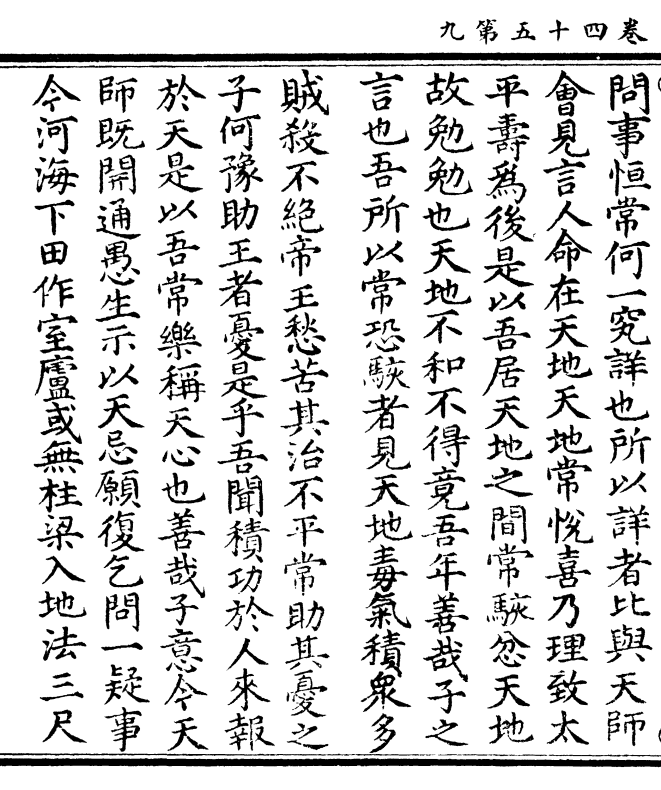 卷四十五第九
問事恒常何一究詳也所以詳者比與天師
會見言人命在天地天地常悅喜乃理致太
平壽爲後是以吾居天地之間常駭忿天地
故勉勉也天地不和不得竟吾年善哉子之
言也吾所以常恐駭者見天地毒氣積衆多
賊殺不絕帝王愁苦其治不平常助其憂之
子何豫助王者憂是乎吾聞積功於人來報
於天是以吾常樂稱天心也善哉子意今天
師既開通愚生示以天忌願復乞問一疑事
今河海下田作室廬或無柱梁入地法三尺